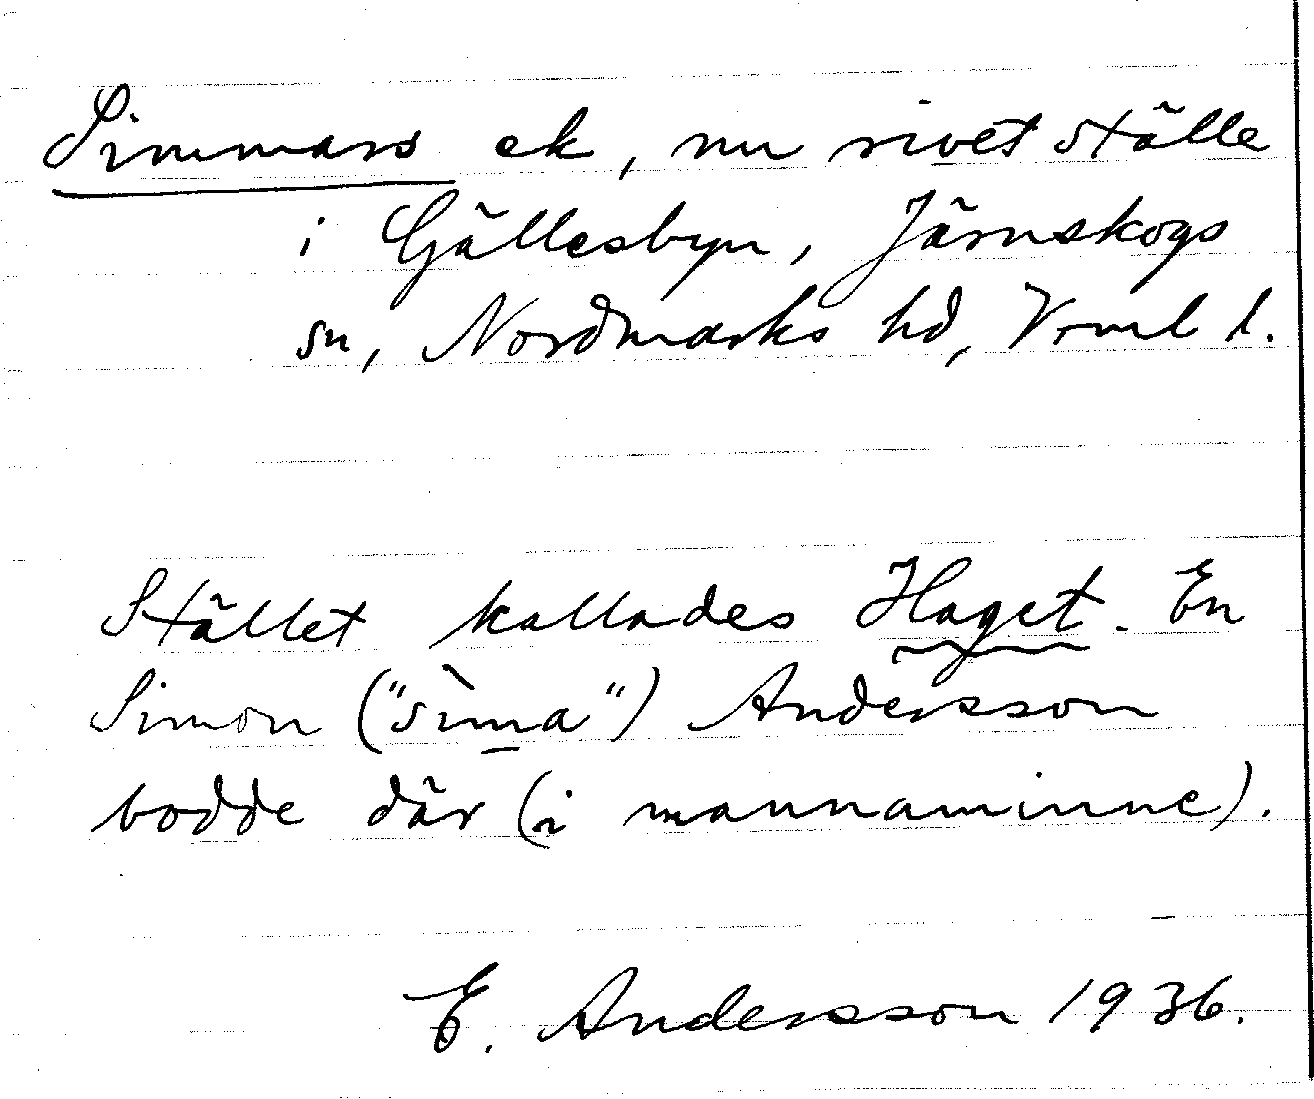 Simmars ek, nu rivet ställe
i Gällesbyn, Järnskogs
sn, Nordmarks hd, Vrml l.
Stället kallades Haget. En
Simon ("sìma") Andersson
bodde där (i mannaminne).
E. Andersson 1936.